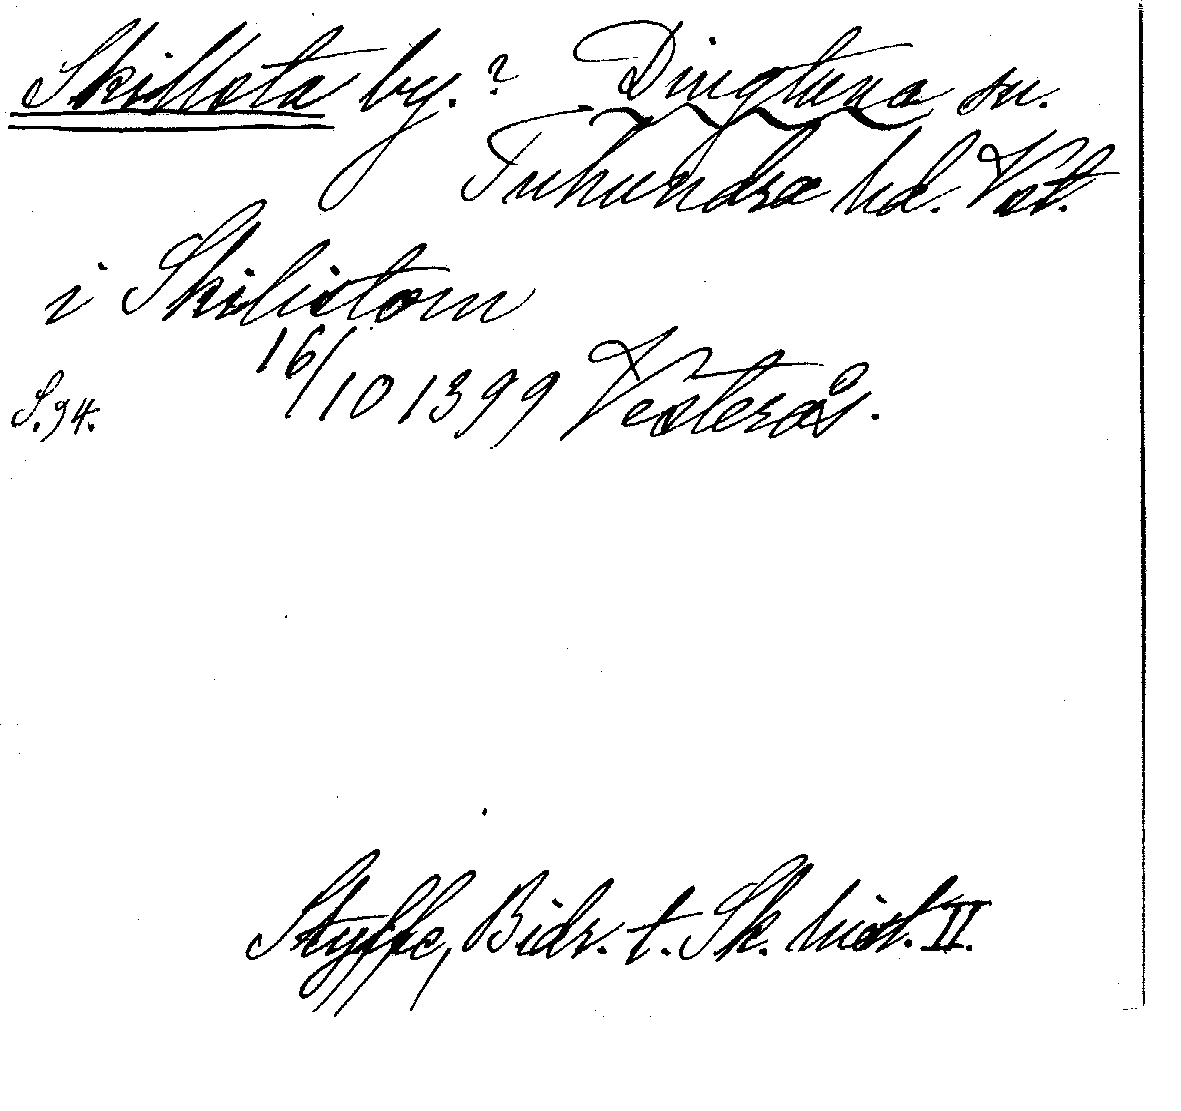 Skillsta by.? Dingtuna sn.
Tuhundra hd. Vstm.
i Skilistom
16/10 1399 Vesterås.
S. 94.
Styffe, Bidr. t. Sk. hist. II.